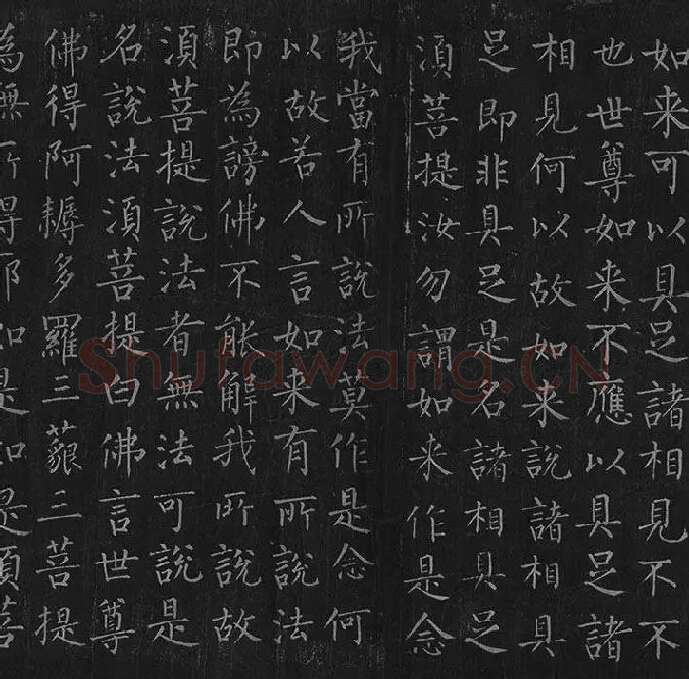 如来可以具足諸相見不不
也世尊如来不應以具足諸
相見何以故如来說諸相具
足即非具足是名諸相具足
湏菩提汝勿謂如来作是念
我當有所說法莫作是念何
以故若人言如来有所說法
即為謗佛不能解我所說故
湏菩提說法者無法可說是
名說法湏菩提白佛言世尊
佛得阿耨多羅三藐三菩提
為無所得耶如是如是湏菩
Shufawang.CN